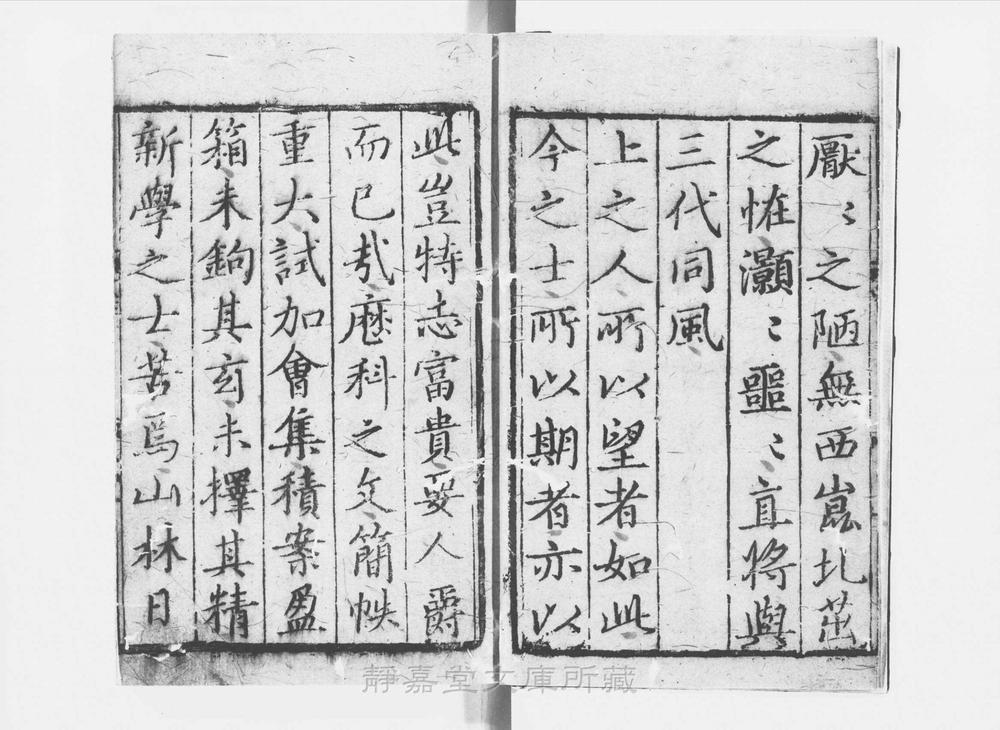 厭〻之陋無西崑北茁
之恠灝〻噩〻直將與
三代同風
上之人所以望者如此
今之士所以期者亦以
此豈特志富貴要人爵
而已㢤歷科之文簡帙
重大試加會集積案盈
箱未鉤其玄未擇其精
新學之士苦焉山林日
靜嘉堂文庫所藏